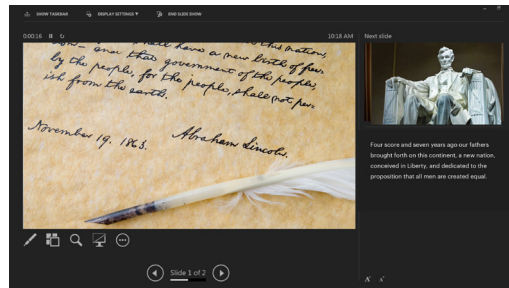 SHOW TASKBAR
DISPLAY SETTINGS ▼
END SLIDE SHOW
0:00:16
10:18 AM
Next slide
shall have a new birth of free
dom— and that government of the people,
by the people, for the people, shall not per-
ish from the earth.
November 19. 1863.
Abraham Lincoln.
Four score and seven years ago our fathers
brought forth on this continent, a new nation,
conceived in Liberty, and dedicated to the
proposition that all men are created equal.
Slide 1 of 2
A
A